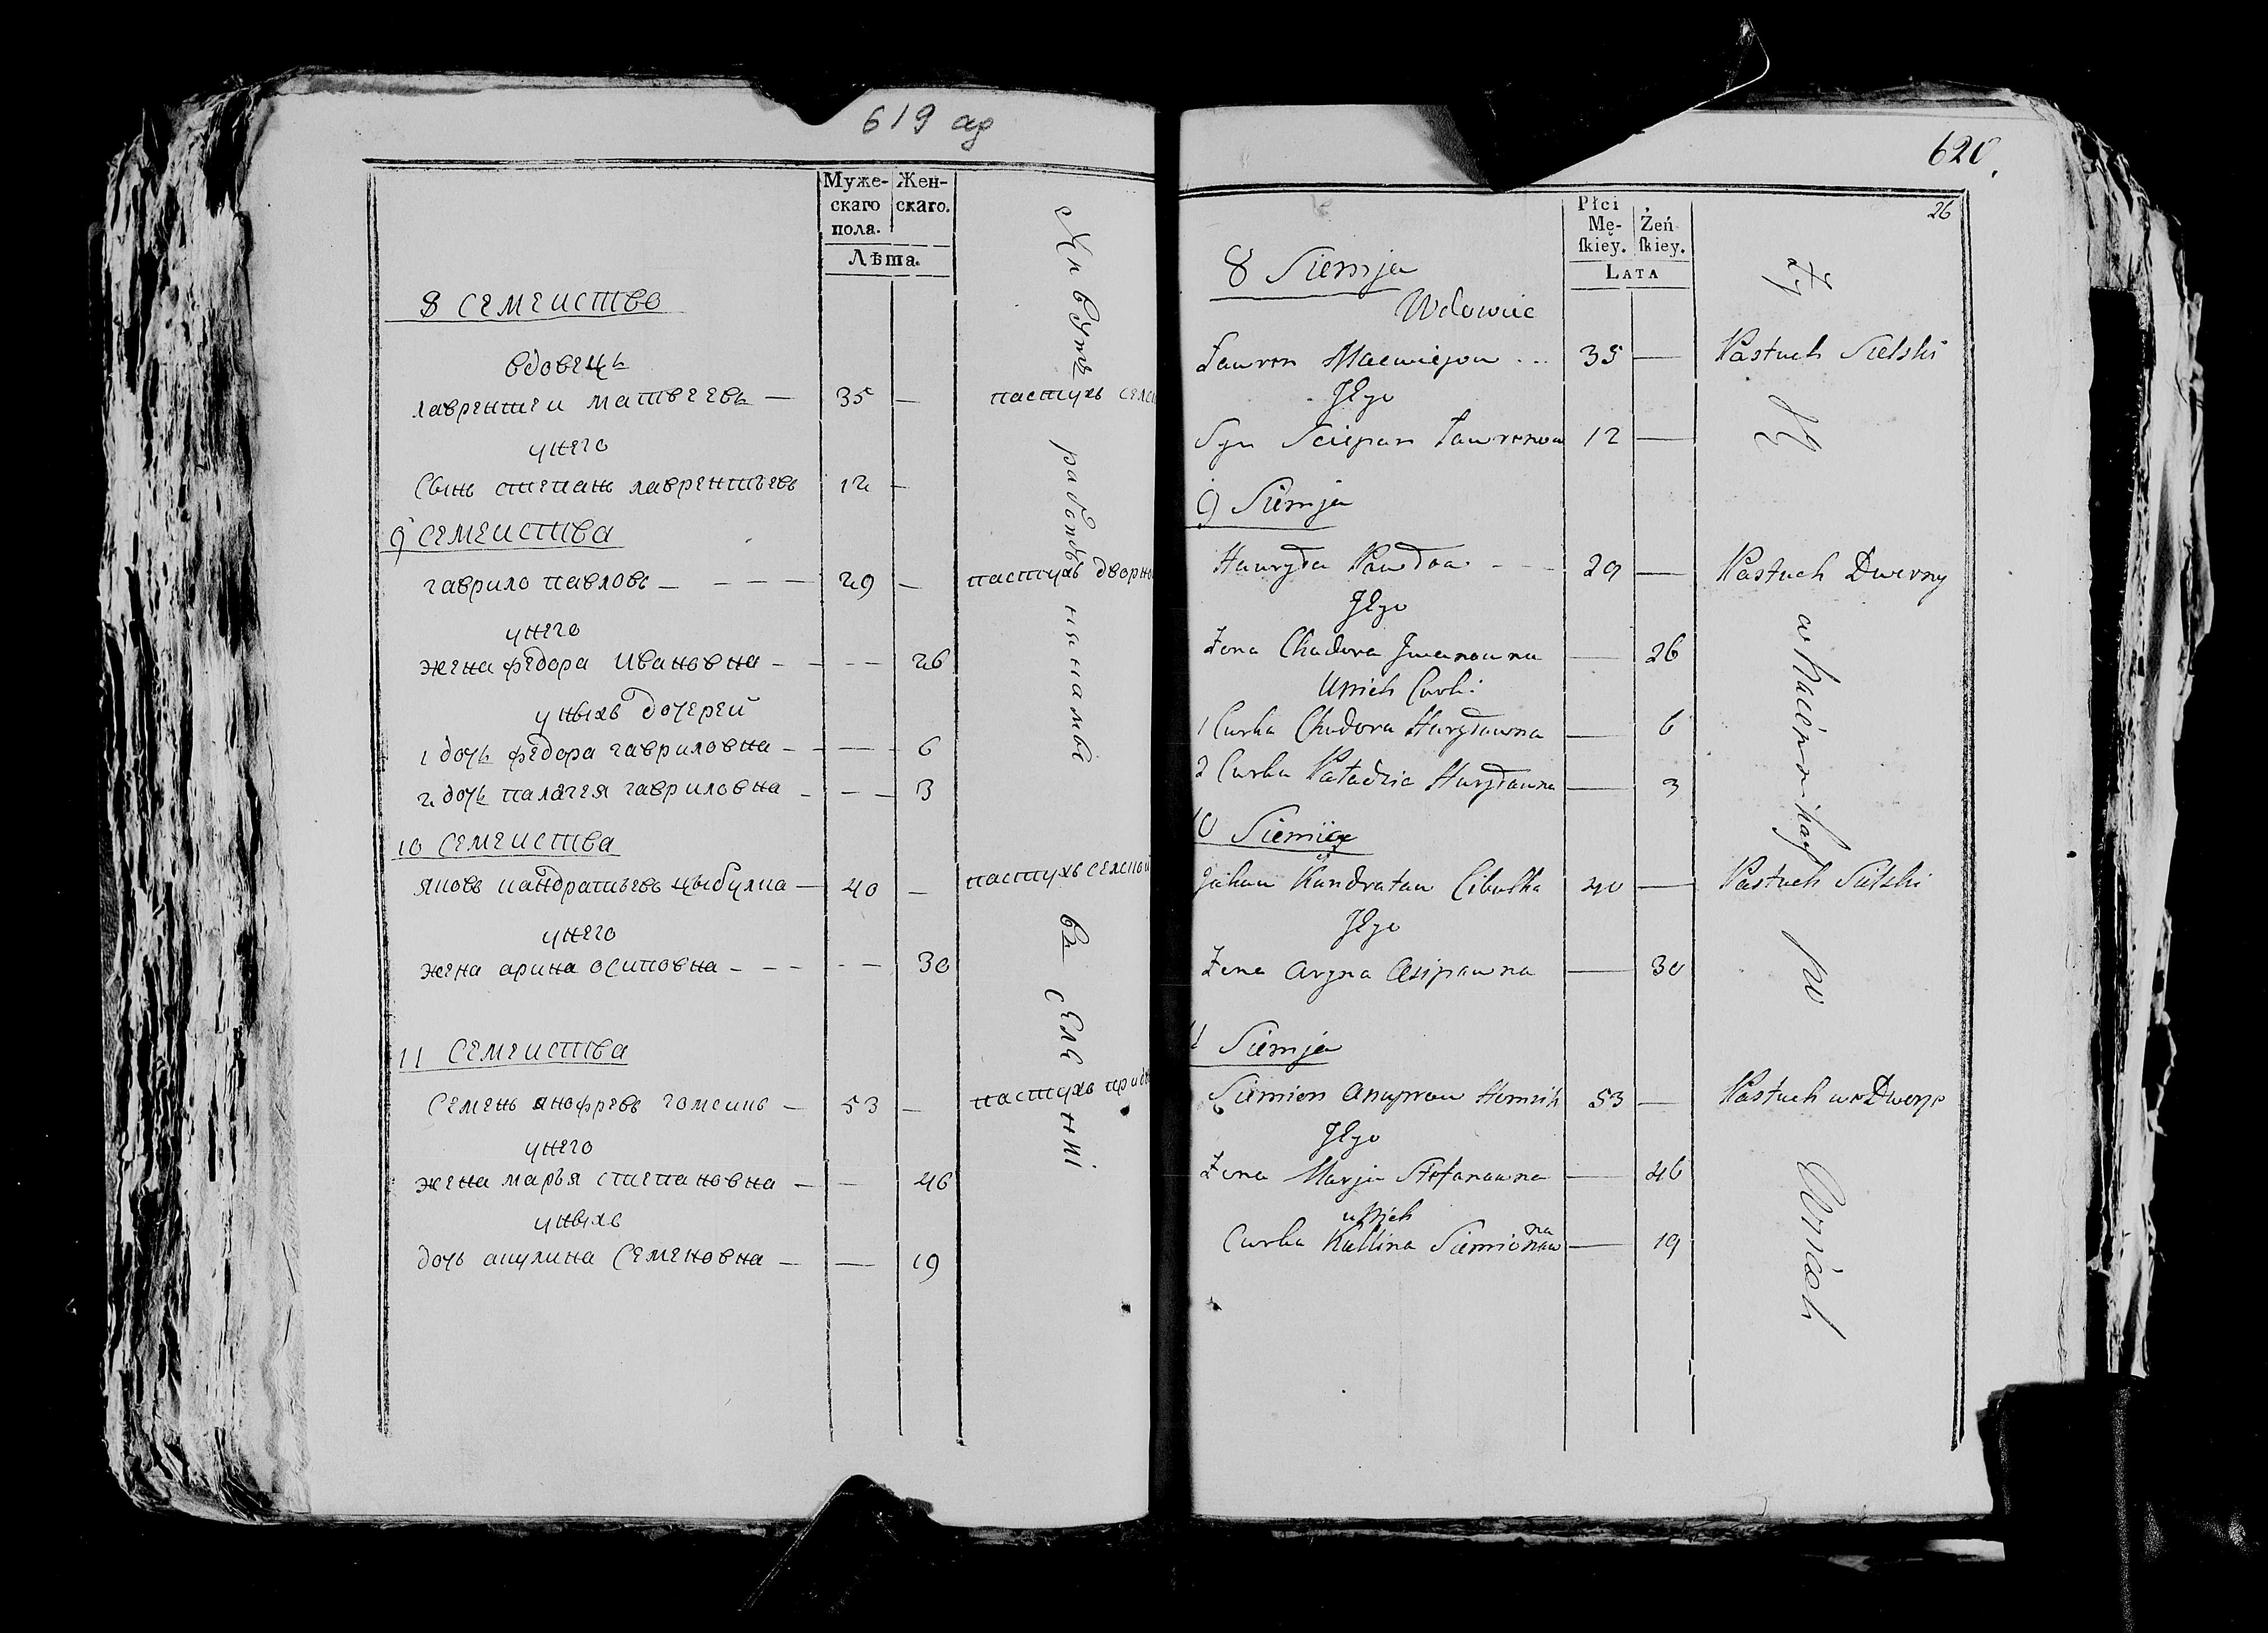 619 аф
Муже-
скаго
пола.
Жен-
скаго.
Лѣта.
8 семеиство
вдовецъ
лаврентіеи матвеевъ — 35 —
пастухъ
унего
сынъ степанъ лаврентьевъ 12 —
9 семеиства
гаврило павловъ — — — — 29 —
пастухъ дворно
унего
жена федора ивановна — — — 26
уныхъ дочерей
1 дочь федора гавриловна — — — 6
2 дочь палагея гавриловна — — — 3
10 семеиства
яковъ кандратьевъ цыбулка — 40 —
пастухъ селской
унего
жена арина осиповна — — — — 30
11 семеиства
семенъ анофревъ гомсинъ — 53 —
пастухъ
унего
жена марья степановна — — 46
уныхъ
дочь акулина семеновна — — 19
живутъ
работъ
въ
620.
26
Płci
Mę-
ſkiey.
Żeń
ſkiey.
LATA
8 Siemja
Wdowiec
Ławren Maciejow ... 35 — Pastuch Sielski
Jego
Syn Sciepan Ławrenow 12 —
9 Siemja
Hauryła Pawłow - - 29 — Pastuch Dworny
Jego
Żena Chadora Jwanowna — 26
U nich Curki
1 Curka Chadora Huryławna — 6
2 Curka Paładzia Huryławna — 3
10 Siemija
Jakau Kandratau Cibulka 40 — Pastuch Sielski
Jego
Żena Aryna Asipawna — 30
11 Siemja
Siemion Anuprow Homsin 53 — Pastuch we Dworze
Jego
Żena Marja Stefanawna — 46
u nich
Curka Kullina Siemionawna — 19
po